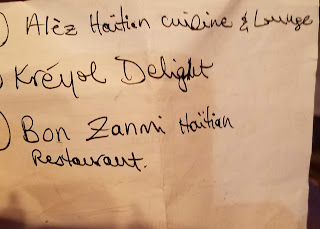 ) Alèz Haitian cuisine & Lounge
Kréyol Delight
) Bon Zanmi Haïtian
Restaurant.